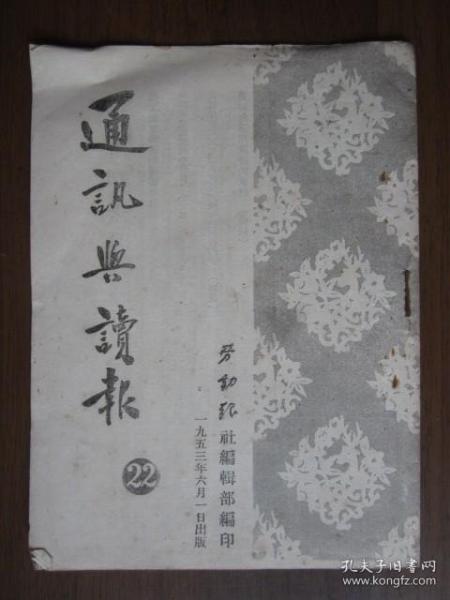 通訊與讀報
22
勞動報社編輯部編印
一九五三年六月一日出版
孔夫子旧书网
www.kongfz.com